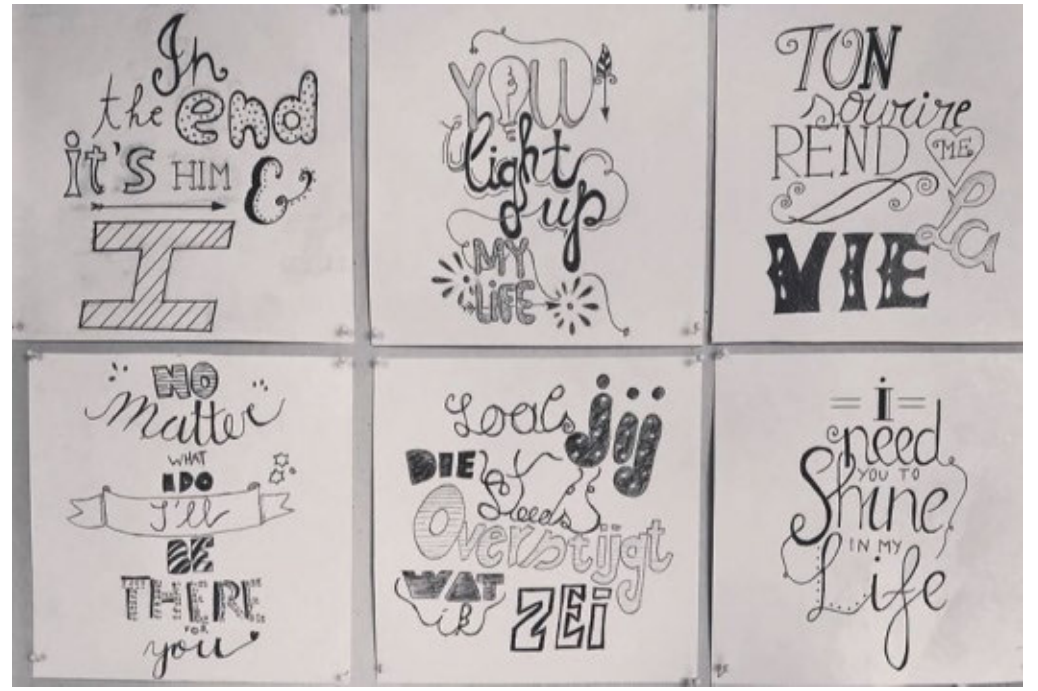 In
the end
it's HIM &
I
YOU
light
up
MY
LIFE
TON
sourire
REND ME
La
VIE
NO
Matter
WHAT
I DO
I'll
BE
THERE
FOR
you
Zoals jij
DIE
steeds
Overstijgt
WAT
ik ZEi
I
need
YOU TO
Shine
IN MY
Life